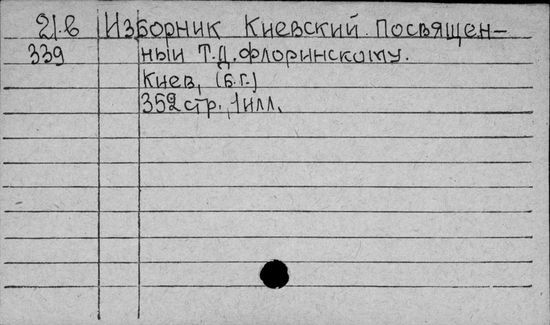 21.в Изборник Киевский. Посвящен-
339 ный Т.Д. Флоринскому.
Киев, (б.г.)
352 стр., 1 илл.